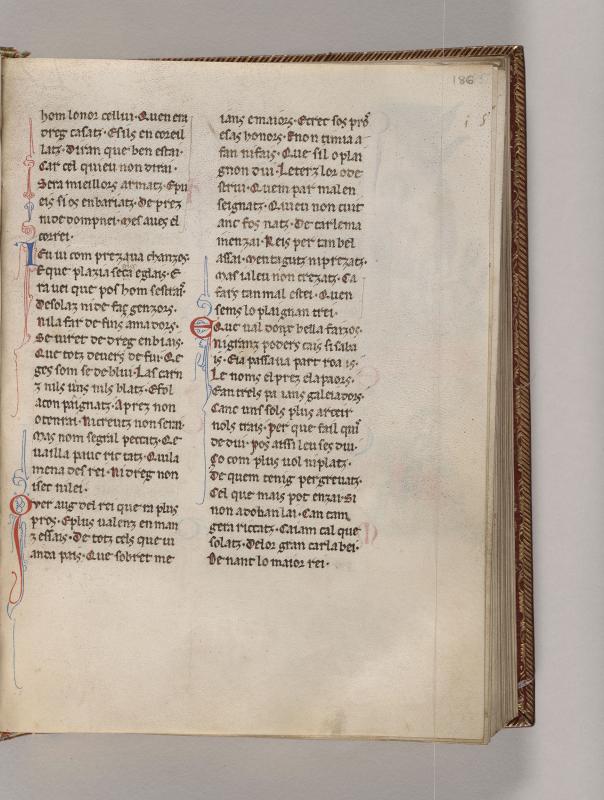 186
hom lonor cellui · Quen era
dreg casatz · Esils en coreil
latz · Diran que ben estai ·
Car cel qui eu non dirai ·
Sera mieillors armatz · Epu
eis si os enbariatz · De prez
ni de dompnei · Mes aues el
correi ·
Ieu ui com prezaua chanzos ·
E que plazia seca eglais · E
ra uei que pos hom sestrai ·
Desolaz ni de faç genzors ·
Nila far de fins amadors ·
Se uiret de dreg en biais ·
Que totz deuers de fui · Qe
ges som se deblui · Las carn
z nils uins nils blatz · Efol
acon paignatz · Aprez non
otenrai · Ni creutz non serai ·
Mas nom segral peccatz · Qe
uailla pauc ric tatz · Quila
mena desrei · Ni dreg non
iset nilei ·
Oper aug del rei que ra plus
pros · Eplus ualenz en man
z essais · De totz cels que ui
anda pais · Que sobret me
ians e maiors · Ecret sos prez
esas honors · Enon timia a
fan ni fais · Que sil o plai
gnon dui · Leterz lor ode
strui · Quem par mal en
seignatz · Quieu non cuit
anc fos natz · De carlema
inenzai · Reis per tan bel
assai · Mentagutz ni prezatz ·
Mas ia leu non crezatz · Ca
fars tan mal estei · Quen
sems lo plaignan trei ·
E que ual donx bella faizos ·
ni granz poders cais si saba
is · Eia passaua part roa is ·
Le noms el prez ela paors ·
Ean trels pa ians galeiadors ·
Canc uns sols plus arreir
nols trais · per que fail qui
de dui · pos aissi leu ses dui ·
Ço com plus uol ni platz ·
De quem tenig per greuatz ·
Cel que mais pot enzai · Si
non adoban lai · Can cam
gera riccatz · Caiam cal que
solatz · Delor gran carlabei ·
Denant lo maior rei ·